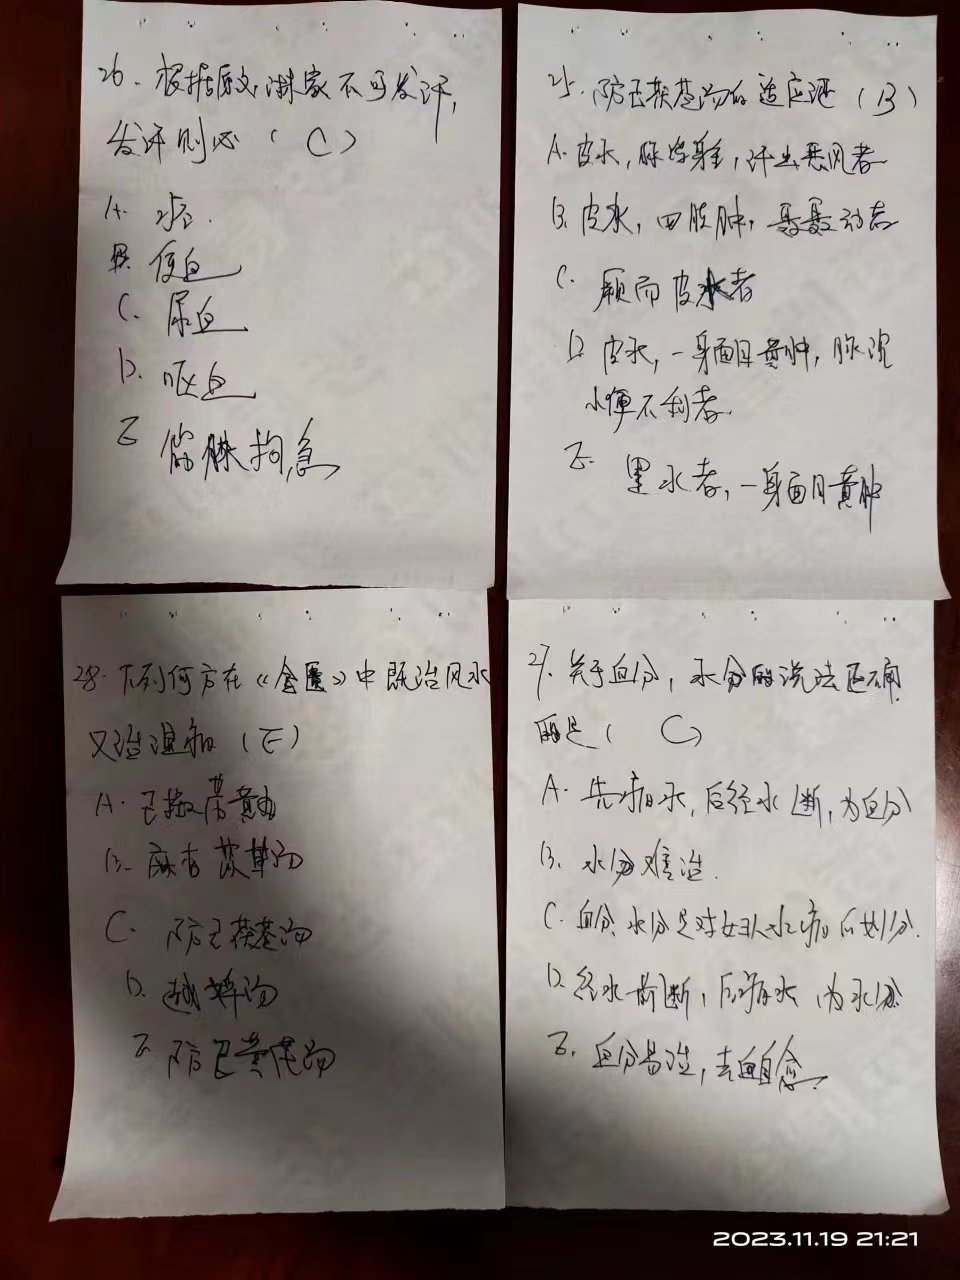 26. 根据原文淋家不可发汗,
发汗则必（ C ）
A. 痉.
B. 便血
C. 尿血
D. 呕血
E 筋脉拘急
25. 防己茯苓汤的适应证（B）
A. 皮水，脉浮，汗出恶风者
B. 皮水，四肢肿，聂聂动者
C. 厥而皮水者
D. 皮水，一身面目黄肿，脉沉
小便不利者.
E. 里水者，一身面目黄肿
28. 下列何方在《金匮》中既治风水
又治湿病（E）
A. 己椒黄丸
B. 麻杏苡草汤
C. 防己茯苓汤
D. 越婢汤
E 防己黄芪汤
27. 关于血分，水分的说法正确
的是（ C ）
A. 先病水，后经水断，为血分
B. 水分难治.
C. 血分、水分是对妇人水病的划分.
D. 经水前断，后病水，为水分
E. 血分易治，去血自愈.
2023.11.19 21:21